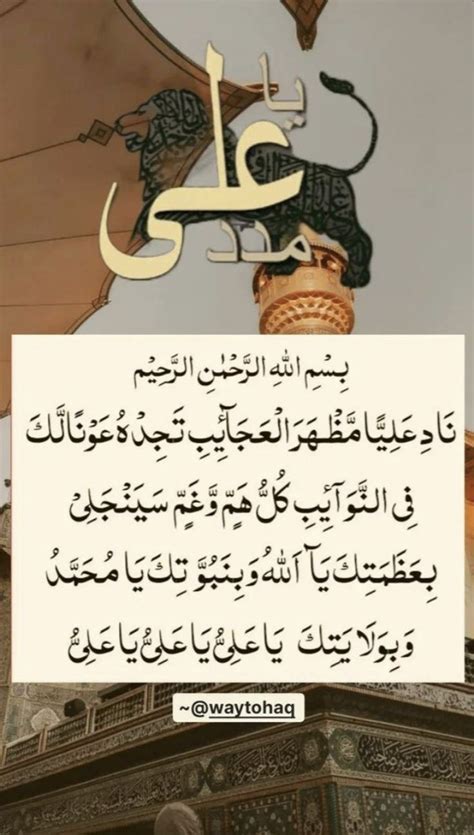 يا
علی
مدد
بِسْمِ اللهِ الرَّحْمٰنِ الرَّحِيْمِ
نَادِ عَلِيًّا مَّظْهَرَ الْعَجَآئِبِ تَجِدْهُ عَوْنًا لَّكَ
فِى النَّوَآئِبِ كُلُّ هَمٍّ وَّغَمٍّ سَيَنْجَلِىْ
بِعَظَمَتِكَ يَآ اَللهُ وَبِنَبُوَّتِكَ يَا مُحَمَّدُ
وَبِوَلَايَتِكَ يَا عَلِىُّ يَا عَلِىُّ يَا عَلِىُّ
~@waytohaq